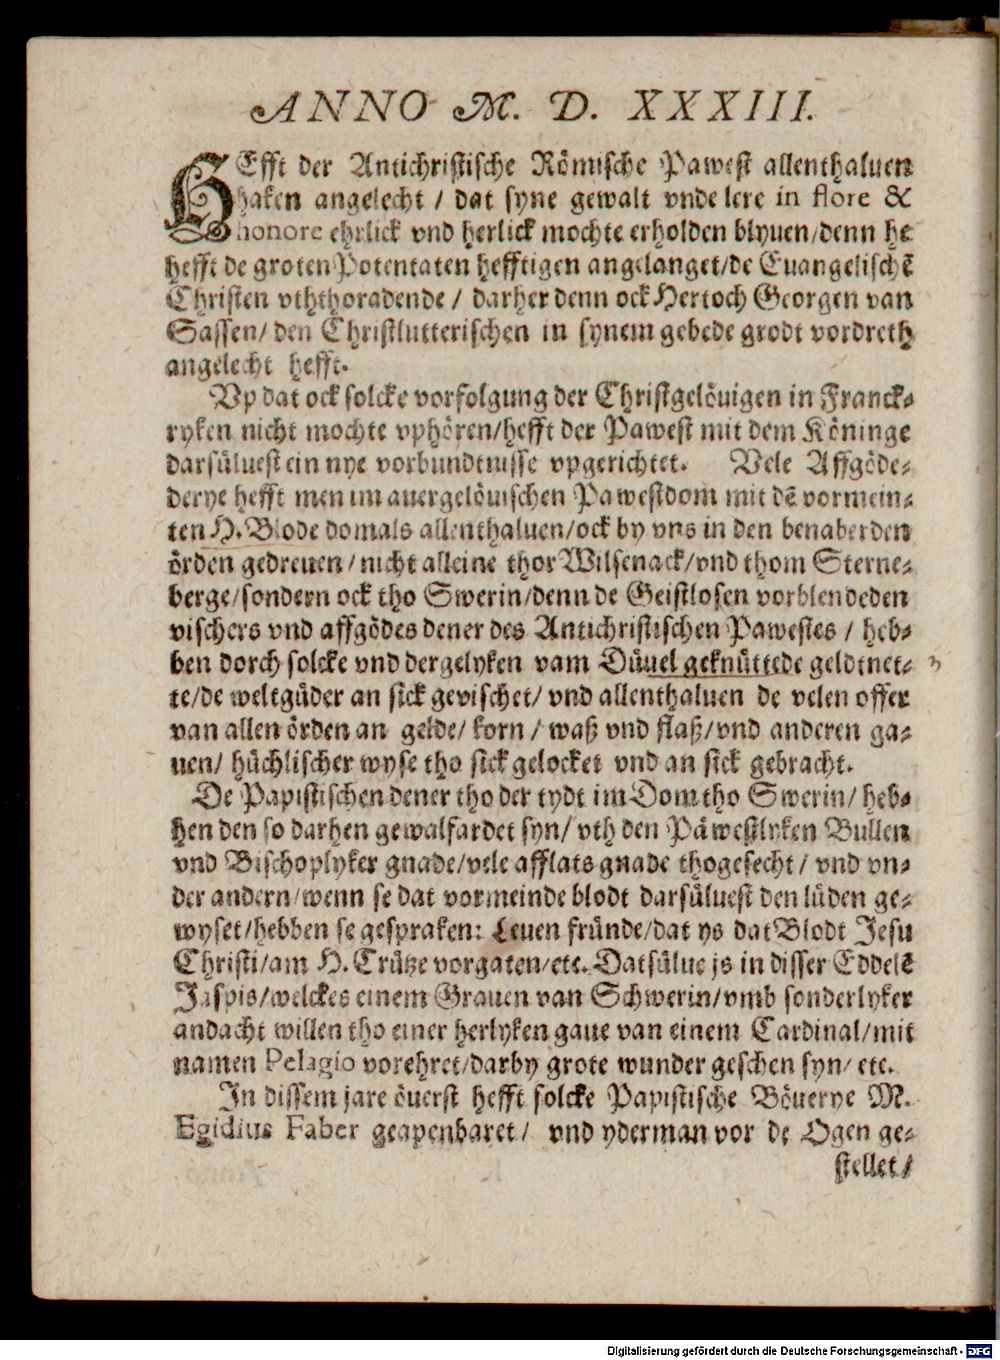 ANNO M. D. XXXIII.
HEfft der Antichristische Römische Pawest allenthaluen
haken angelecht / dat syne gewalt vnde lere in flore &
honore ehrlick vnd herlick mochte erholden blyuen/denn he
hefft de groten Potentaten hefftigen angelanget/de Euangelischē
Christen vththoradende / darher denn ock Hertoch Georgen van
Sassen/ den Christlutterischen in synem gebede grodt vordreth
angelecht hefft.
Vp dat ock solcke vorfolgung der Christgelöuigen in Franck-
ryken nicht mochte vphören/hefft der Pawest mit dem Köninge
darsüluest ein nye vorbundtnisse vpgerichtet. Vele Affgöde-
derye hefft men im auergelöuischen Pawestdom mit dē vormein-
ten H. Blode domals allenthaluen/ock by vns in den benaberden
örden gedreuen/ nicht alleine thor Wilsenack/vnd thom Sterne-
berge/sondern ock tho Swerin/denn de Geistlosen vorblendeden
vischers vnd affgödes dener des Antichristischen Pawestes / heb-
ben dorch solcke vnd dergelyken vam Düuel geknüttede geldtnet-
te/de weltgüder an sick gevischet/ vnd allenthaluen de velen offer
van allen örden an gelde/ korn / waß vnd flaß/vnd anderen ga-
uen/ hüchlischer wyse tho sick gelocket vnd an sick gebracht.
De Papistischen dener tho der tydt im Dom tho Swerin/ heb-
ben den so darhen gewalfardet syn/ vth den Päwestlyken Bullen
vnd Bischoplyker gnade/vele afflats gnade thogesecht / vnd vn-
der andern/wenn se dat vormeinde blodt darsüluest den lüden ge-
wyset/hebben se gespraken: Leuen fründe/dat ys dat Blodt Jesu
Christi/am H. Crütze vorgaten/etc. Datsülue js in disser Eddelē
Jaspis/welckes einem Grauen van Schwerin/vmb sonderlyker
andacht willen tho einer herlyken gaue van einem Cardinal/mit
namen Pelagio vorehret/darby grote wunder geschen syn/ etc.
In dissem jare öuerst hefft solcke Papistische Böuerye M.
Egidius Faber geapenbaret / vnd yderman vor de Ogen ge-
stellet /
Digitalisierung gefördert durch die Deutsche Forschungsgemeinschaft - DFG